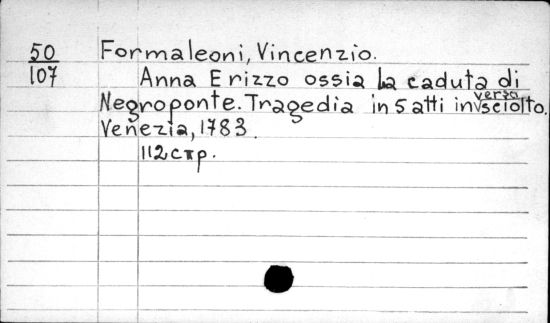 50
107
Formaleoni, Vincenzio.
Anna Erizzo ossia la caduta di
Negroponte. Tragedia in 5 atti in verso sciolto.
Venezia, 1783.
112 стр.